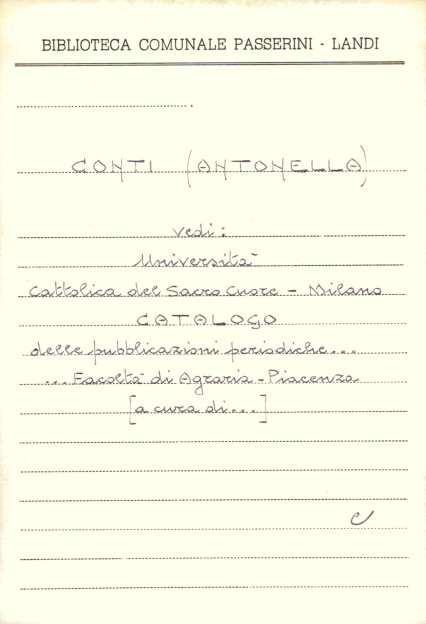 BIBLIOTECA COMUNALE PASSERINI - LANDI
CONTI (ANTONELLA)
vedi:
Università
Cattolica del Sacro Cuore - Milano
CATALOGO
delle pubblicazioni periodiche...
... Facoltà di Agraria - Piacenza
[a cura di...]